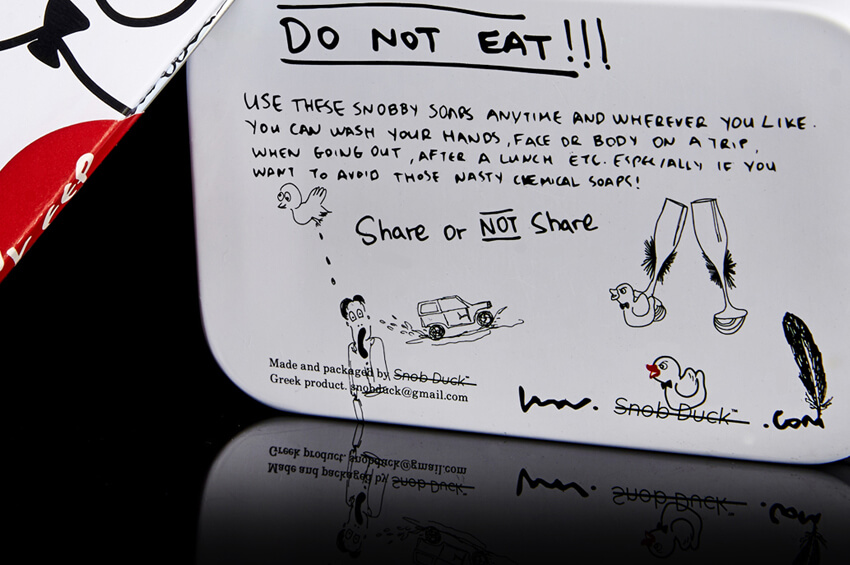 DO NOT EAT!!!
USE THESE SNOBBY SOAPS ANYTIME AND WHEREVER YOU LIKE.
YOU CAN WASH YOUR HANDS, FACE OR BODY ON A TRIP,
WHEN GOING OUT, AFTER A LUNCH ETC. ESPECIALLY IF YOU
WANT TO AVOID THOSE NASTY CHEMICAL SOAPS!
Share or NOT Share
Made and packaged by Snob Duck™
Greek product. snobduck@gmail.com
www. Snob Duck™ .com